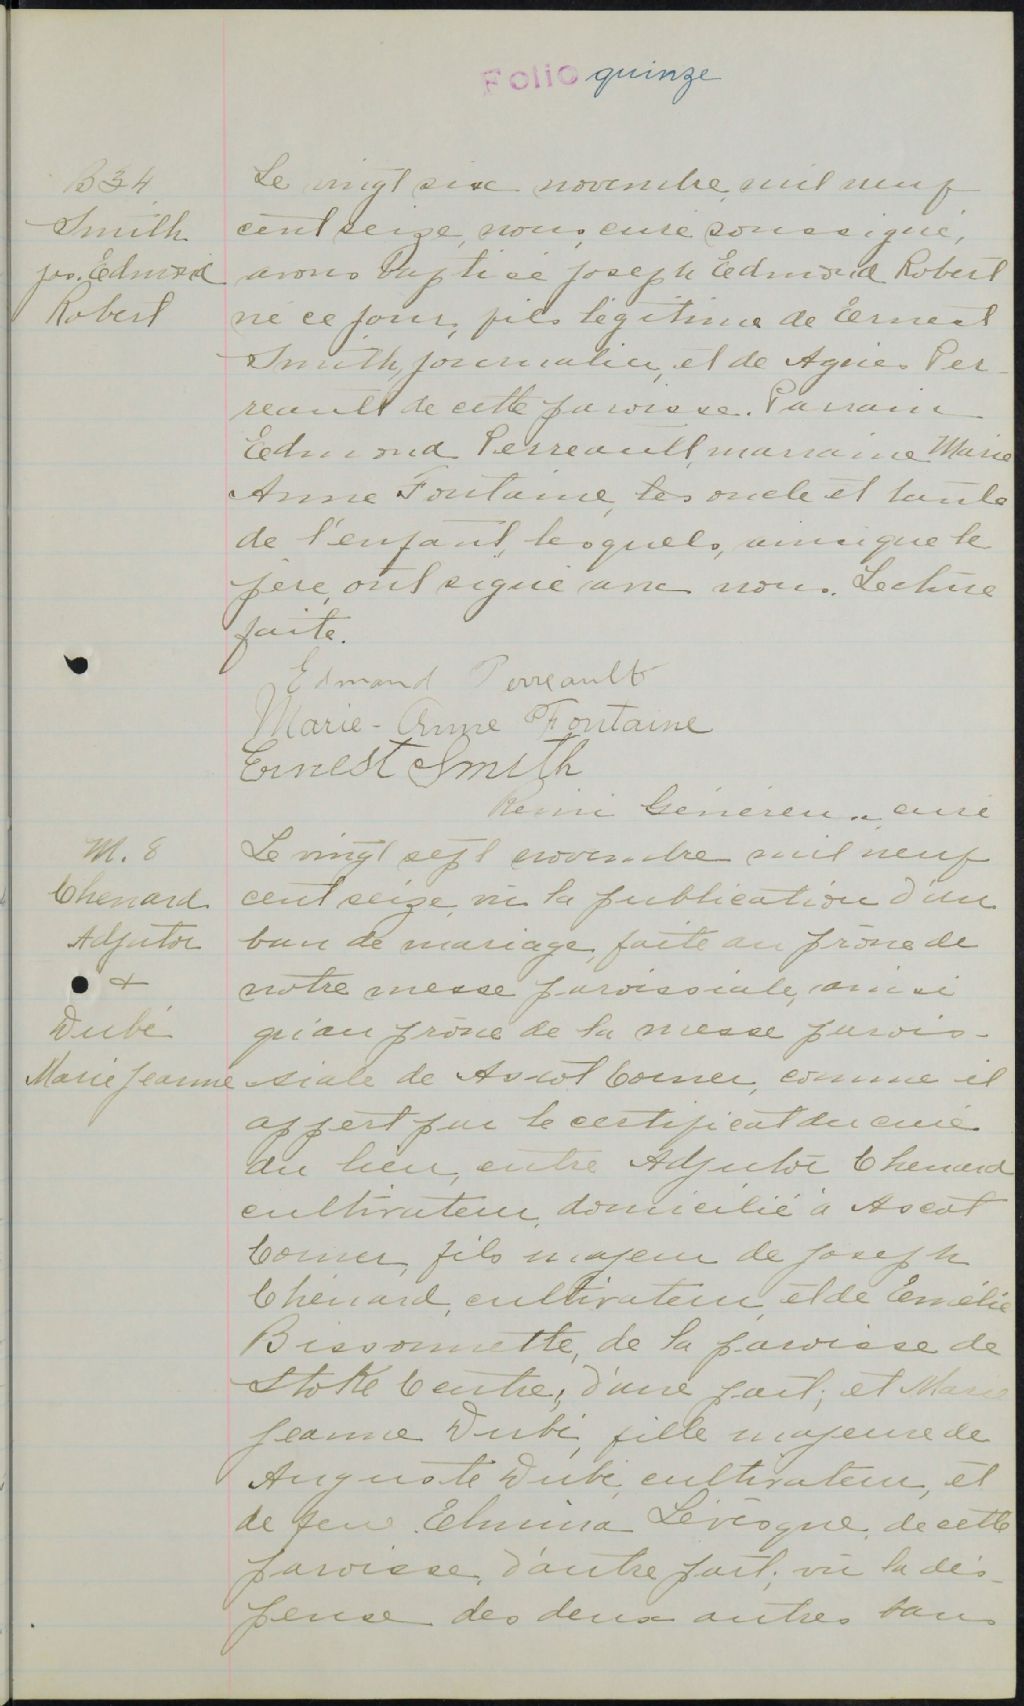 Folio quinze
B 34
Smith
Jos. Edmond
Robert
Le vingt six novembre, mil neuf
cent seize, nous, curé soussigné,
avons baptisé Joseph Edmond Robert
né ce jour, fils légitime de Ernest
Smith, journalier, et de Agnès Per-
reault de cette paroisse. Parrain
Edmond Perreault, marraine Marie
Anne Fontaine, les oncle et tante
de l'enfant, lesquels, ainsi que le
père, ont signé avec nous. Lecture
faite.
Edmond Perreault
Marie-Anne Fontaine
Ernest Smith
Rémi Généreux, curé
M. 8
Chenard
Adjutor
+
Dubé
Marie Jeanne
Le vingt sept novembre mil neuf
cent seize, vu la publication d'un
ban de mariage, faite au prône de
notre messe paroissiale, ainsi
qu'au prône de la messe parois-
siale de Ascot Corner, comme il
appert par le certificat du curé
du lieu, entre Adjutor Chenard
cultivateur, domicilié à Ascot
Corner, fils majeur de Joseph
Chénard, cultivateur, et de Emélie
Bissonnette, de la paroisse de
Stoke Centre, d'une part; et Marie
Jeanne Dubé, fille majeure de
Auguste Dubé, cultivateur, et
de feu Elmina Lévesque, de cette
paroisse, d'autre part; vu la dis-
pense des deux autres bans